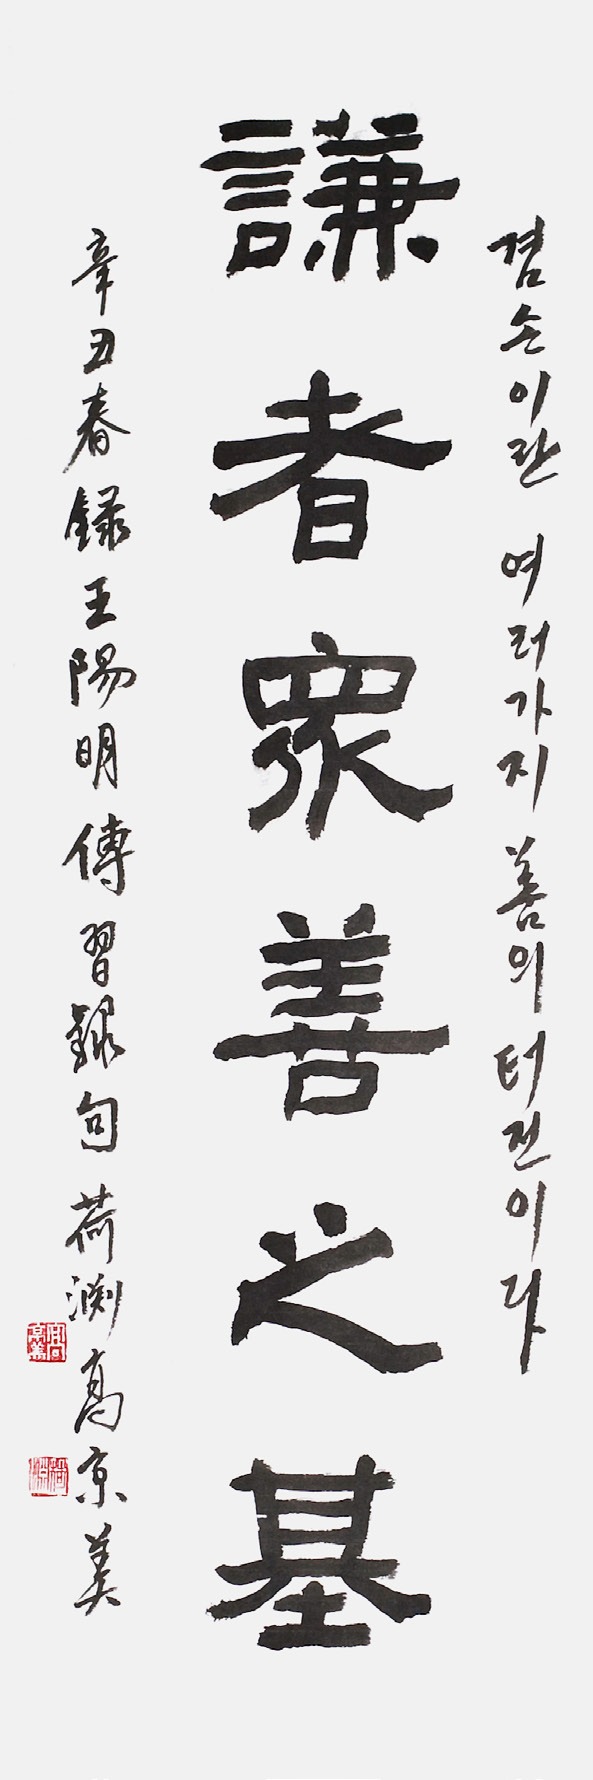 겸손이란 여러가지 善의 터전이다
謙者衆善之基
辛丑春 錄王陽明傳習錄句 荷渕 高京美